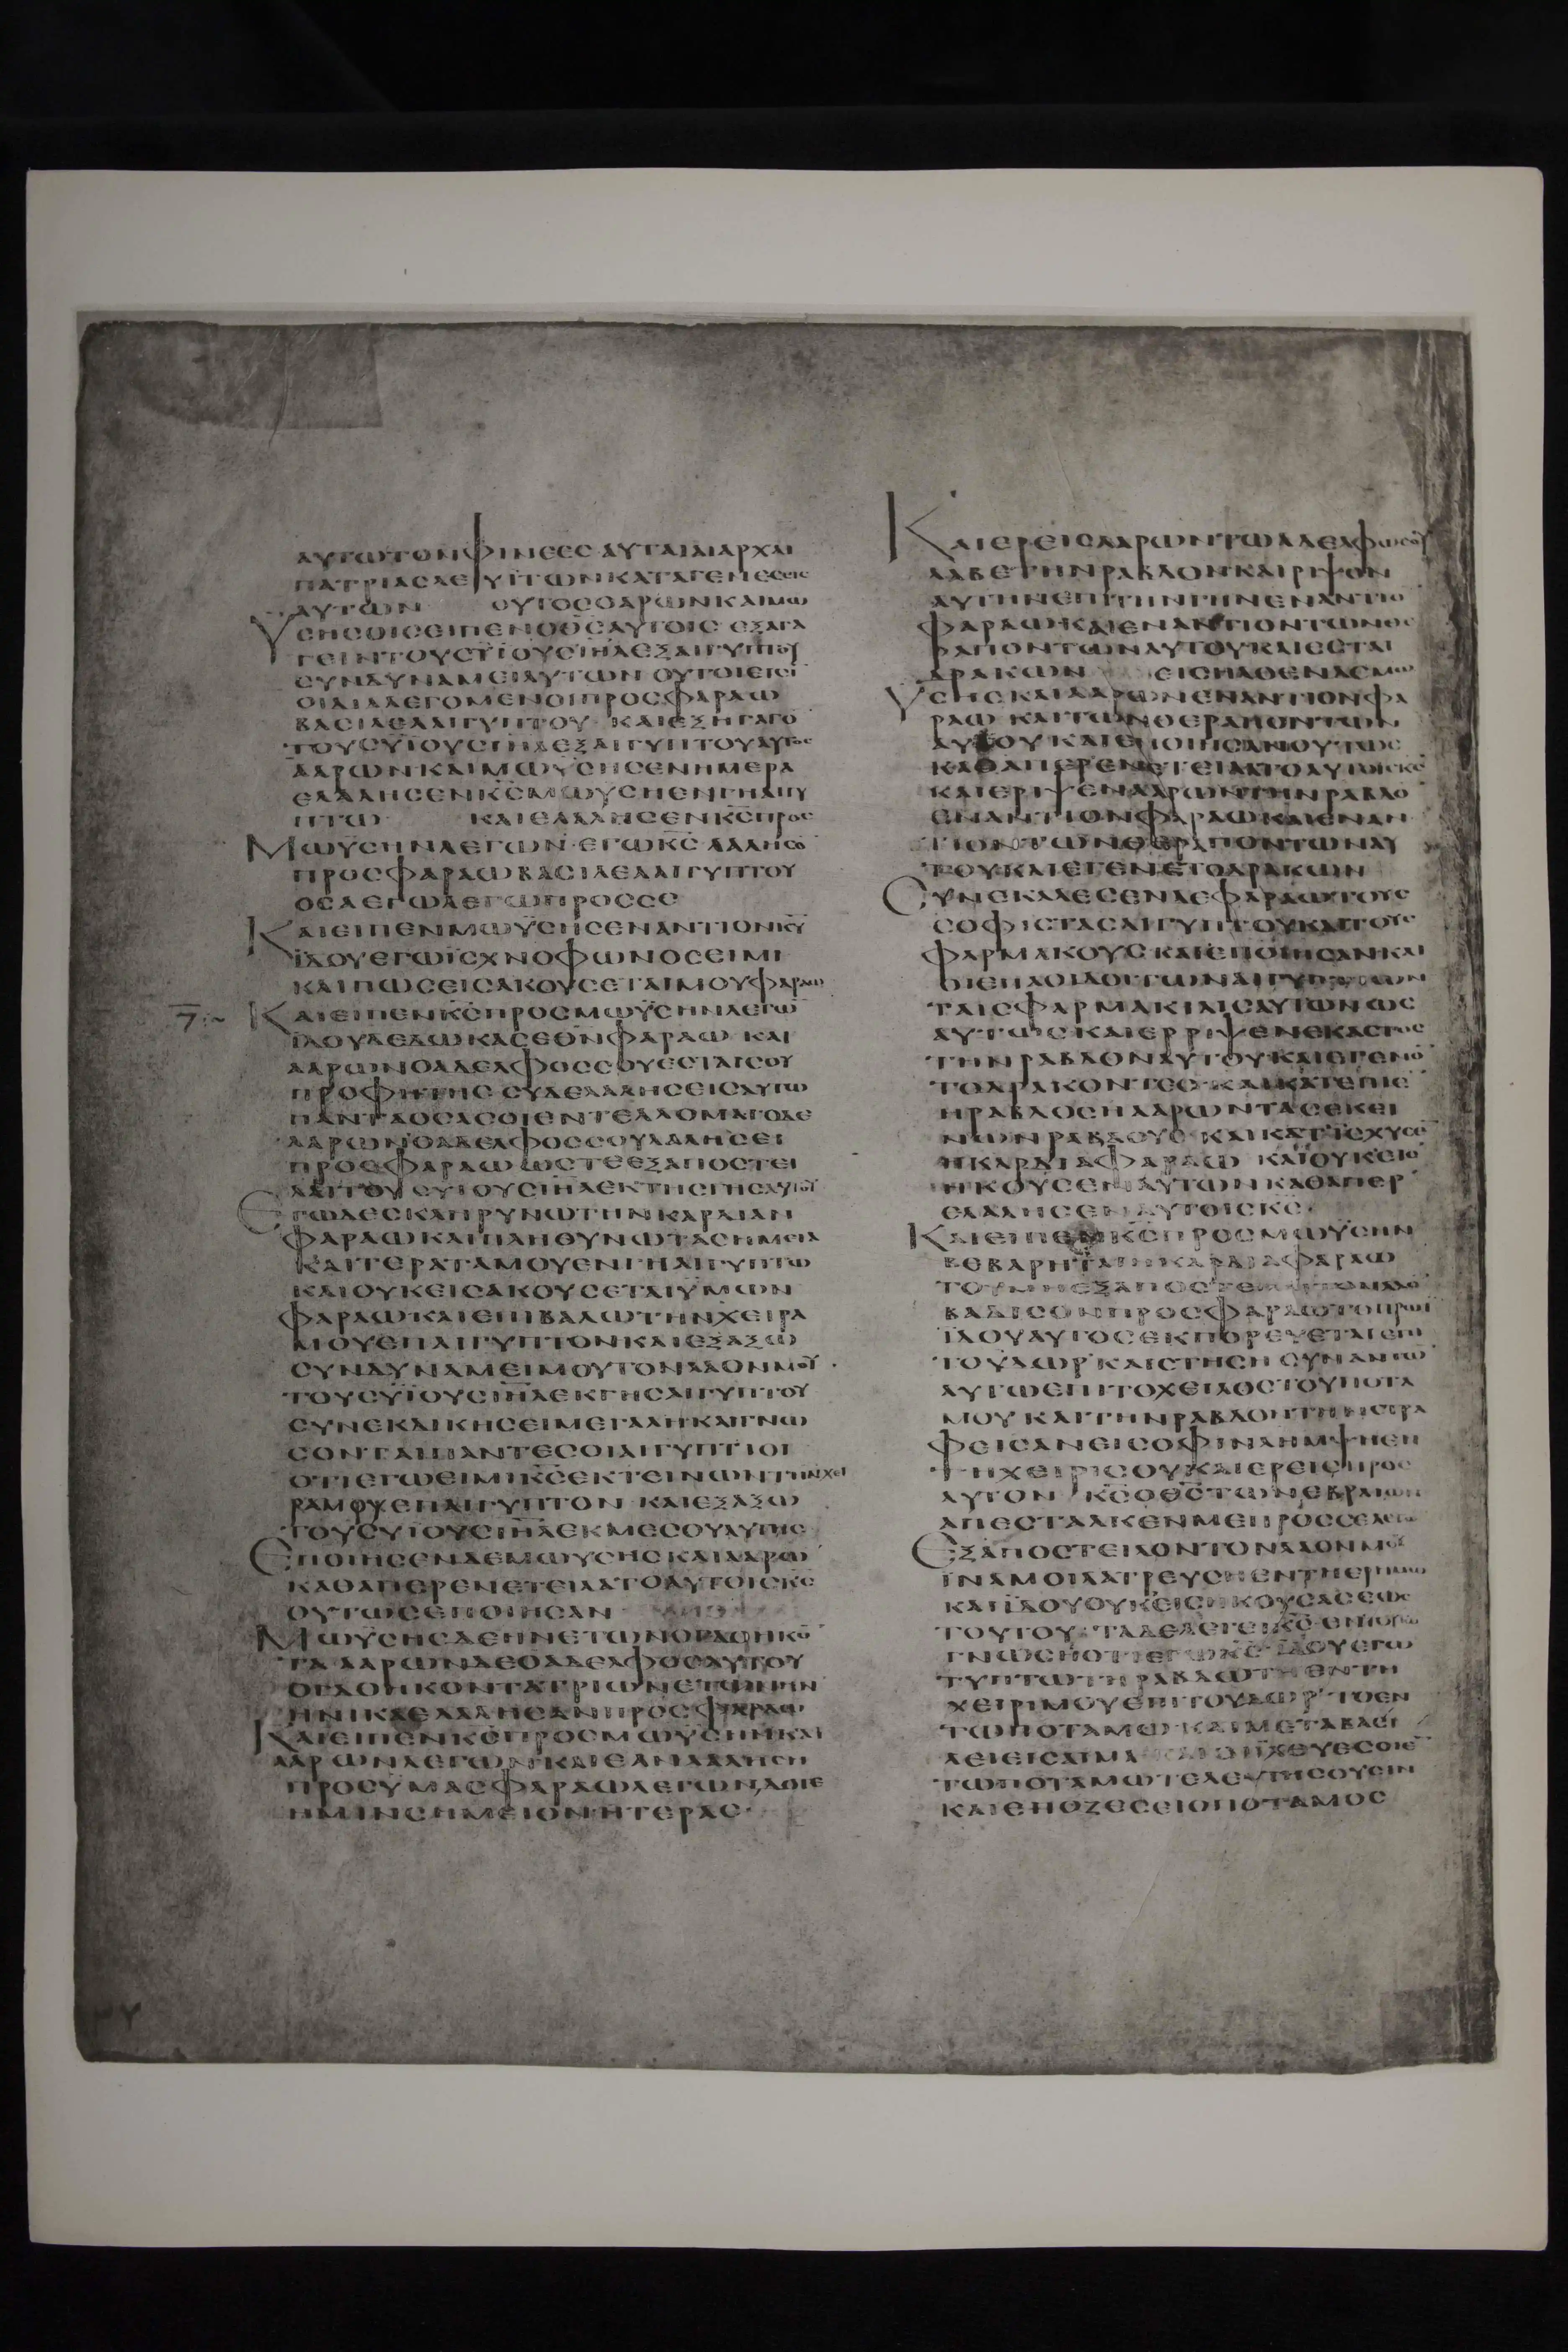 ΑΥΤΩΤΟΝΦΙΝΕΕΣ ΑΥΤΑΙΑΙΑΡΧΑΙ
ΠΑΤΡΙΑΣΛΕΥΙΤΩΝΚΑΤΑΓΕΝΕΣΕΙΣ
ΑΥΤΩΝ ΟΥΤΟΣΟΑΡΩΝΚΑΙΜΩ
ΥΣΗΣΟΙΣΕΙΠΕΝΟΘΣΑΥΤΟΙΣ ΕΞΑΓΑ
ΓΕΙΝΤΟΥΣΥΪΟΥΣΙΗΛΕΞΑΙΓΥΠΤΟΥ
ΣΥΝΔΥΝΑΜΕΙΑΥΤΩΝ ΟΥΤΟΙΕΙΣΙ
ΟΙΔΙΑΛΕΓΟΜΕΝΟΙΠΡΟΣΦΑΡΑΩ
ΒΑΣΙΛΕΑΑΙΓΥΠΤΟΥ ΚΑΙΕΞΗΓΑΓΟ
ΤΟΥΣΥΪΟΥΣΙΗΛΕΞΑΙΓΥΠΤΟΥΑΥΤΟΣ
ΑΑΡΩΝΚΑΙΜΩΥΣΗΣΕΝΗΜΕΡΑ
ΕΛΑΛΗΣΕΝΚΣΜΩΥΣΗΕΝΓΗΑΙΓΥ
ΠΤΩ ΚΑΙΕΛΑΛΗΣΕΝΚΣΠΡΟΣ
ΜΩΥΣΗΝΛΕΓΩΝ ΕΓΩΚΣ ΛΑΛΗΣΟ
ΠΡΟΣΦΑΡΑΩΒΑΣΙΛΕΑΑΙΓΥΠΤΟΥ
ΟΣΑΕΓΩΛΕΓΩΠΡΟΣΣΕ
ΚΑΙΕΙΠΕΝΜΩΥΣΗΣΕΝΑΝΤΙΟΝΚΥ
ΪΔΟΥΕΓΩΪΣΧΝΟΦΩΝΟΣΕΙΜΙ
ΚΑΙΠΩΣΕΙΣΑΚΟΥΣΕΤΑΙΜΟΥΦΑΡΑΩ
ΚΑΙΕΙΠΕΝΚΣΠΡΟΣΜΩΥΣΗΝΛΕΓΩ
ΪΔΟΥΔΕΔΩΚΑΣΕΘΝΦΑΡΑΩ ΚΑΙ
ΑΑΡΩΝΟΑΔΕΛΦΟΣΣΟΥΕΣΤΑΙΣΟΥ
ΠΡΟΦΗΤΗΣ ΣΥΔΕΛΑΛΗΣΕΙΣΑΥΤΩ
ΠΑΝΤΑΟΣΑΣΟΙΕΝΤΕΛΛΟΜΑΙΟΔΕ
ΑΑΡΩΝΟΑΔΕΛΦΟΣΣΟΥΛΑΛΗΣΕΙ
ΠΡΟΣΦΑΡΑΩ ΩΣΤΕΕΞΑΠΟΣΤΕΙ
ΛΑΙΤΟΥΣΥΙΟΥΣΙΗΛΕΚΤΗΣΓΗΣΑΥΤΟΥ
ΕΓΩΔΕΣΚΛΗΡΥΝΩΤΗΝΚΑΡΔΙΑΝ
ΦΑΡΑΩΚΑΙΠΛΗΘΥΝΩΤΑΣΗΜΕΙΑ
ΚΑΙΤΕΡΑΤΑΜΟΥΕΝΓΗΑΙΓΥΠΤΩ
ΚΑΙΟΥΚΕΙΣΑΚΟΥΣΕΤΑΙΥΜΩΝ
ΦΑΡΑΩΚΑΙΕΠΙΒΑΛΩΤΗΝΧΕΙΡΑ
ΜΟΥΕΠΑΙΓΥΠΤΟΝΚΑΙΕΞΑΞΩ
ΣΥΝΔΥΝΑΜΕΙΜΟΥΤΟΝΛΑΟΝΜΟΥ
ΤΟΥΣΥΪΟΥΣΙΗΛΕΚΓΗΣΑΙΓΥΠΤΟΥ
ΣΥΝΕΚΔΙΚΗΣΕΙΜΕΓΑΛΗΚΑΙΓΝΩ
ΣΟΝΤΑΙΠΑΝΤΕΣΟΙΑΙΓΥΠΤΙΟΙ
ΟΤΙΕΓΩΕΙΜΙΚΣΕΚΤΕΙΝΩΝΤΗΝΧΕΙ
ΡΑΜΟΥΕΠΑΙΓΥΠΤΟΝ ΚΑΙΕΞΑΞΩ
ΤΟΥΣΥΪΟΥΣΙΗΛΕΚΜΕΣΟΥΑΥΤΗΣ
ΕΠΟΙΗΣΕΝΔΕΜΩΥΣΗΣΚΑΙΑΑΡΩ
ΚΑΘΑΠΕΡΕΝΕΤΕΙΛΑΤΟΑΥΤΟΙΣΚΣ
ΟΥΤΩΣΕΠΟΙΗΣΑΝ
ΜΩΥΣΗΣΔΕΗΝΕΤΩΝΟΓΔΟΗΚΟ
ΤΑ ΑΑΡΩΝΔΕΟΑΔΕΛΦΟΣΑΥΤΟΥ
ΟΓΔΟΗΚΟΝΤΑΤΡΙΩΝΕΤΩΝΗΝ
ΗΝΙΚΑΕΛΑΛΗΣΑΝΠΡΟΣΦΑΡΑΩ
ΚΑΙΕΙΠΕΝΚΣΠΡΟΣΜΩΥΣΗΝΚΑΙ
ΑΑΡΩΝΛΕΓΩΝΚΑΙΕΑΝΛΑΛΗΣΗ
ΠΡΟΣΥΜΑΣΦΑΡΑΩΛΕΓΩΝ,ΔΟΤΕ
ΗΜΙΝΣΗΜΕΙΟΝΗΤΕΡΑΣ
ΚΑΙΕΡΕΙΣΑΑΡΩΝΤΩΑΔΕΛΦΩΣΟΥ
ΛΑΒΕΤΗΝΡΑΒΔΟΝΚΑΙΡΙΨΟΝ
ΑΥΤΗΝΕΠΙΤΗΝΓΗΝΕΝΑΝΤΙΟ
ΦΑΡΑΩΚΑΙΕΝΑΝΤΙΟΝΤΩΝΘΕ
ΡΑΠΟΝΤΩΝΑΥΤΟΥΚΑΙΕΣΤΑΙ
ΔΡΑΚΩΝ ΕΙΣΗΛΘΕΝΔΕΜΩ
ΥΣΗΣΚΑΙΑΑΡΩΝΕΝΑΝΤΙΟΝΦΑ
ΡΑΩ ΚΑΙΤΩΝΘΕΡΑΠΟΝΤΩΝ
ΑΥΤΟΥΚΑΙΕΠΟΙΗΣΑΝΟΥΤΩΣ
ΚΑΘΑΠΕΡΕΝΕΤΕΙΛΑΤΟΑΥΤΟΙΣΚΣ
ΚΑΙΕΡΙΨΕΝΑΑΡΩΝΤΗΝΡΑΒΔΟ
ΕΝΑΝΤΙΟΝΦΑΡΑΩΚΑΙΕΝΑΝ
ΤΙΟΝΤΩΝΘΕΡΑΠΟΝΤΩΝΑΥ
ΤΟΥΚΑΙΕΓΕΝΕΤΟΔΡΑΚΩΝ
ΣΥΝΕΚΑΛΕΣΕΝΔΕΦΑΡΑΩΤΟΥΣ
ΣΟΦΙΣΤΑΣΑΙΓΥΠΤΟΥΚΑΙΤΟΥΣ
ΦΑΡΜΑΚΟΥΣ ΚΑΙΕΠΟΙΗΣΑΝΚΑΙ
ΟΙΕΠΑΟΙΔΟΙΤΩΝΑΙΓΥΠΤΙΩΝ
ΤΑΙΣΦΑΡΜΑΚΙΑΙΣΑΥΤΩΝΩΣ
ΑΥΤΩΣΚΑΙΕΡΡΙΨΕΝΕΚΑΣΤΟΣ
ΤΗΝΡΑΒΔΟΝΑΥΤΟΥΚΑΙΕΓΕΝΟ
ΤΟΔΡΑΚΟΝΤΕΣ ΚΑΙΚΑΤΕΠΙΕ
ΗΡΑΒΔΟΣΗΑΑΡΩΝΤΑΣΕΚΕΙ
ΝΩΝΡΑΒΔΟΥΣ ΚΑΙΚΑΤΙΣΧΥΣΕ
ΗΚΑΡΔΙΑΦΑΡΑΩ ΚΑΙΟΥΚΕΙΣ
ΗΚΟΥΣΕΝΑΥΤΩΝΚΑΘΑΠΕΡ
ΕΛΑΛΗΣΕΝΑΥΤΟΙΣΚΣ
ΚΑΙΕΙΠΕΝΚΣΠΡΟΣΜΩΥΣΗΝ
ΒΕΒΑΡΗΤΑΙΗΚΑΡΔΙΑΦΑΡΑΩ
ΤΟΥΜΗΕΞΑΠΟΣΤΕΙΛΑΙΤΟΝΛΑΟ
ΒΑΔΙΣΟΝΠΡΟΣΦΑΡΑΩΤΟΠΡΩΙ
ΪΔΟΥΑΥΤΟΣΕΚΠΟΡΕΥΕΤΑΙΕΠΙ
ΤΟΥΔΩΡ ΚΑΙΣΤΗΣΗ ΣΥΝΑΝΤΩ
ΑΥΤΩΕΠΙΤΟΧΕΙΛΟΣΤΟΥΠΟΤΑ
ΜΟΥΚΑΙΤΗΝΡΑΒΔΟΝΤΗΝΣΤΡΑ
ΦΕΙΣΑΝΕΙΣΟΦΙΝΛΗΜΨΗΕΝ
ΤΗΧΕΙΡΙΣΟΥΚΑΙΕΡΕΙΣΠΡΟΣ
ΑΥΤΟΝ ΚΣΟΘΣΤΩΝΕΒΡΑΙΩΝ
ΑΠΕΣΤΑΛΚΕΝΜΕΠΡΟΣΣΕΛΕΓΩ
ΕΞΑΠΟΣΤΕΙΛΟΝΤΟΝΛΑΟΝΜΟΥ
ΪΝΑΜΟΙΛΑΤΡΕΥΣΗΕΝΤΗΕΡΗΜΩ
ΚΑΙΪΔΟΥΟΥΚΕΙΣΗΚΟΥΣΑΣΕΩΣ
ΤΟΥΤΟΥ ΤΑΔΕΛΕΓΕΙΚΣ ΕΝΤΟΥΤΩ
ΓΝΩΣΗΟΤΙΕΓΩΚΣ ΪΔΟΥΕΓΩ
ΤΥΠΤΩΤΗΡΑΒΔΩΤΗΕΝΤΗ
ΧΕΙΡΙΜΟΥΕΠΙΤΟΥΔΩΡ ΤΟΕΝ
ΤΩΠΟΤΑΜΩ ΚΑΙΜΕΤΑΒΑΛΕΙ
ΤΩΠΟΤΑΜΩΤΕΛΕΥΤΗΣΟΥΣΙΝ
ΚΑΙΕΠΟΖΕΣΕΙΟΠΟΤΑΜΟΣ